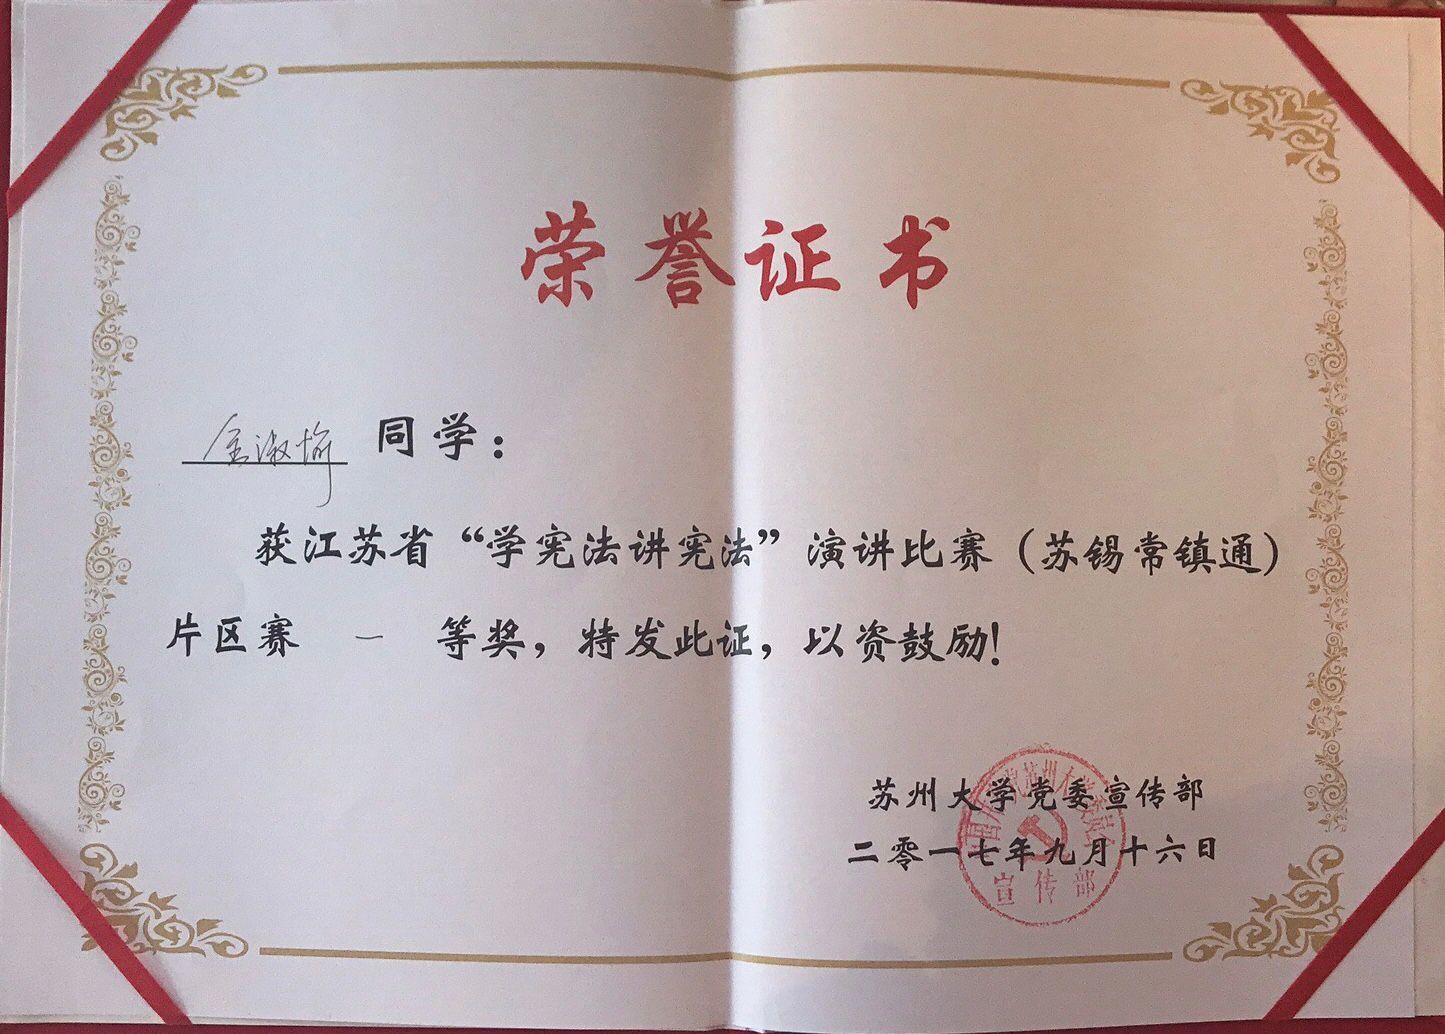 荣誉证书
金淑愉 同学：
获江苏省“学宪法讲宪法”演讲比赛（苏锡常镇通）
片区赛 一 等奖，特发此证，以资鼓励！
苏州大学党委宣传部
二零一七年九月十六日
宣传部